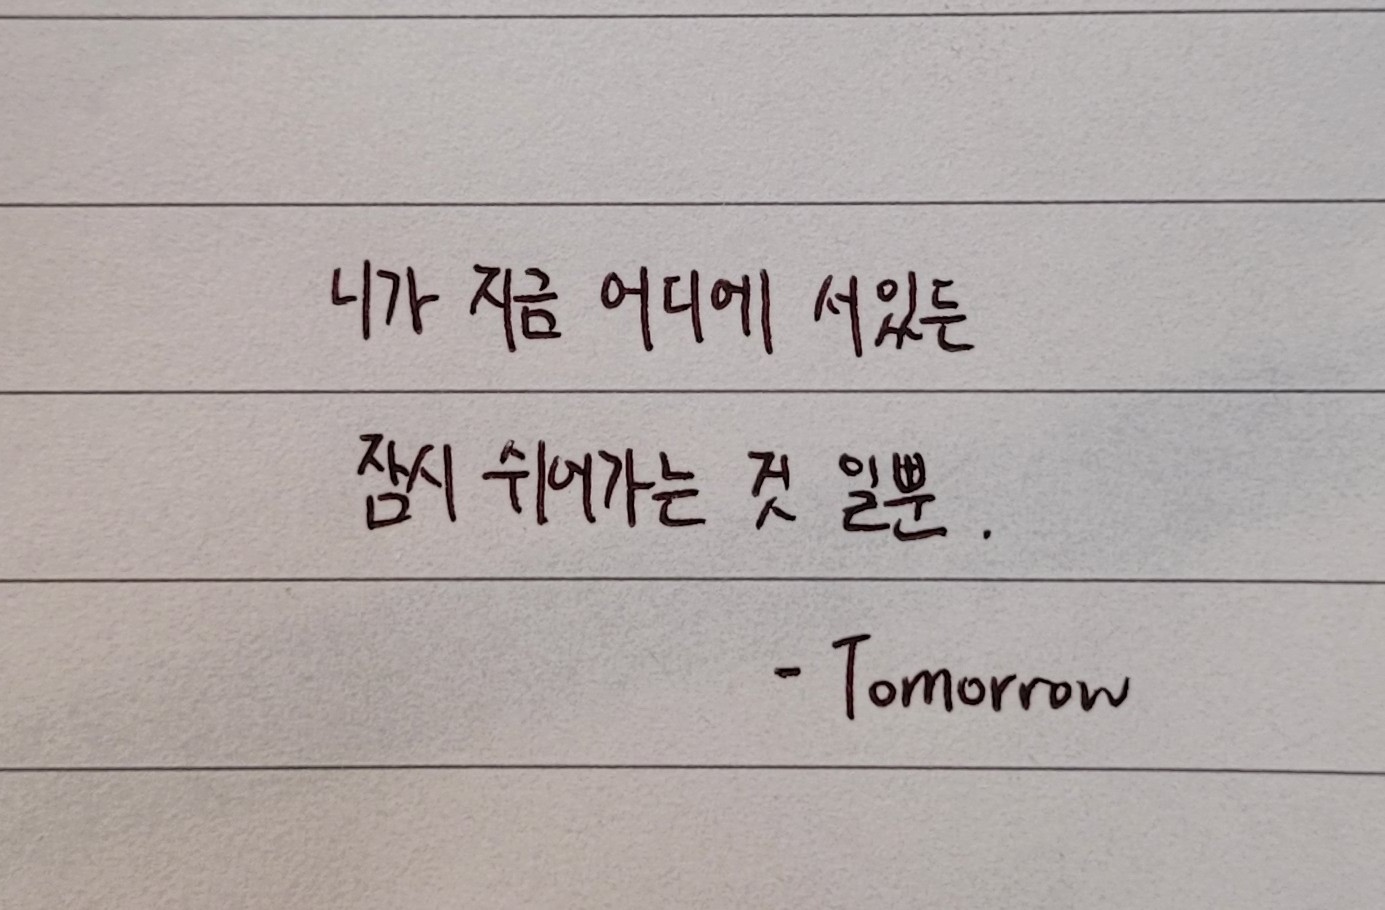 니가 지금 어디에 서있든
잠시 쉬어가는 것 일뿐.
- Tomorrow